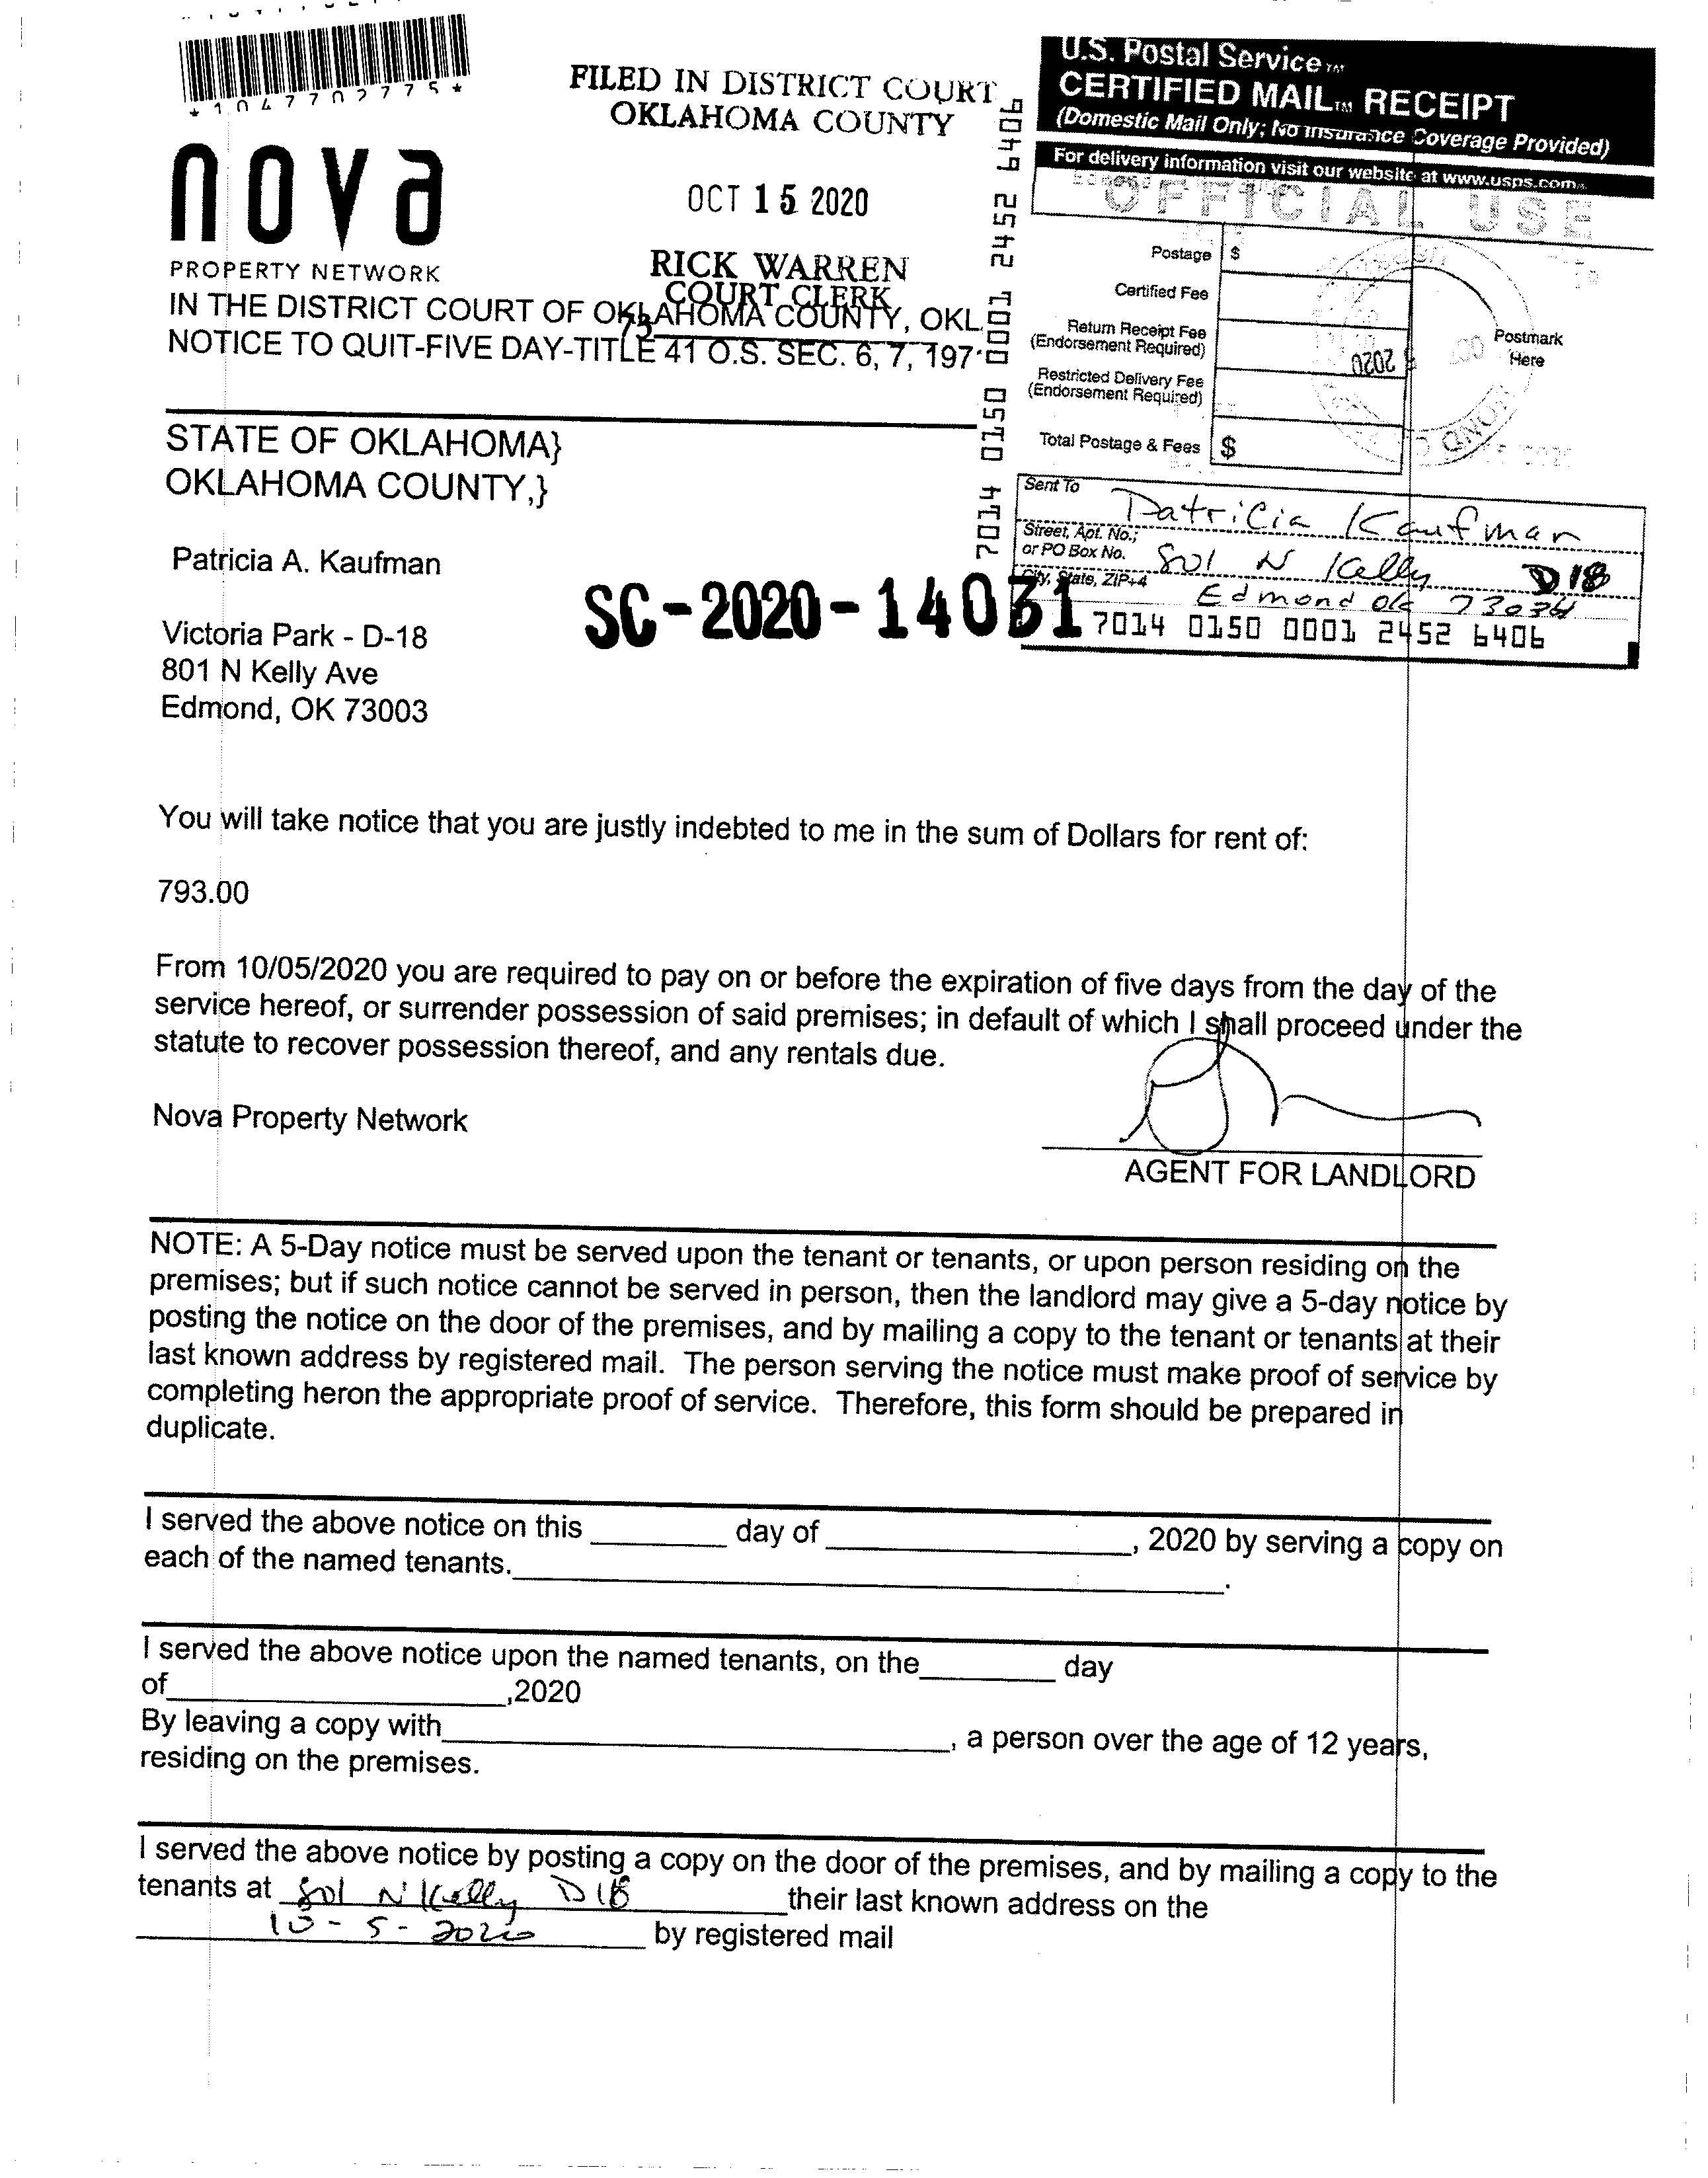 *1047702775*
nova
PROPERTY NETWORK
FILED IN DISTRICT COURT
OKLAHOMA COUNTY
OCT 15 2020
RICK WARREN
COURT CLERK
73
IN THE DISTRICT COURT OF OKLAHOMA COUNTY, OKL
NOTICE TO QUIT-FIVE DAY-TITLE 41 O.S. SEC. 6, 7, 197
7014 0150 0001 2452 6406
U.S. Postal Service™
CERTIFIED MAIL™ RECEIPT
(Domestic Mail Only; No Insurance Coverage Provided)
For delivery information visit our website at www.usps.com
OFFICIAL USE
Postage $
Certified Fee
Return Receipt Fee
(Endorsement Required)
Restricted Delivery Fee
(Endorsement Required)
Total Postage & Fees $
Postmark
Here
2020
Sent To Patricia Kaufman
Street, Apt. No.;
or PO Box No. 801 N Kelly D18
City, State, ZIP+4 Edmond Ok
7014 0150 0001 2452 6406
STATE OF OKLAHOMA}
OKLAHOMA COUNTY,}
Patricia A. Kaufman
SC-2020-14031
Victoria Park - D-18
801 N Kelly Ave
Edmond, OK 73003
You will take notice that you are justly indebted to me in the sum of Dollars for rent of:
793.00
From 10/05/2020 you are required to pay on or before the expiration of five days from the day of the
service hereof, or surrender possession of said premises; in default of which I shall proceed under the
statute to recover possession thereof, and any rentals due.
Nova Property Network
AGENT FOR LANDLORD
NOTE: A 5-Day notice must be served upon the tenant or tenants, or upon person residing on the
premises; but if such notice cannot be served in person, then the landlord may give a 5-day notice by
posting the notice on the door of the premises, and by mailing a copy to the tenant or tenants at their
last known address by registered mail. The person serving the notice must make proof of service by
completing heron the appropriate proof of service. Therefore, this form should be prepared in
duplicate.
I served the above notice on this ________ day of __________________, 2020 by serving a copy on
each of the named tenants.__________________________________________.
I served the above notice upon the named tenants, on the________ day
of____________________,2020
By leaving a copy with______________________________, a person over the age of 12 years,
residing on the premises.
I served the above notice by posting a copy on the door of the premises, and by mailing a copy to the
tenants at 801 N Kelly D18 their last known address on the
10-5-2020 by registered mail